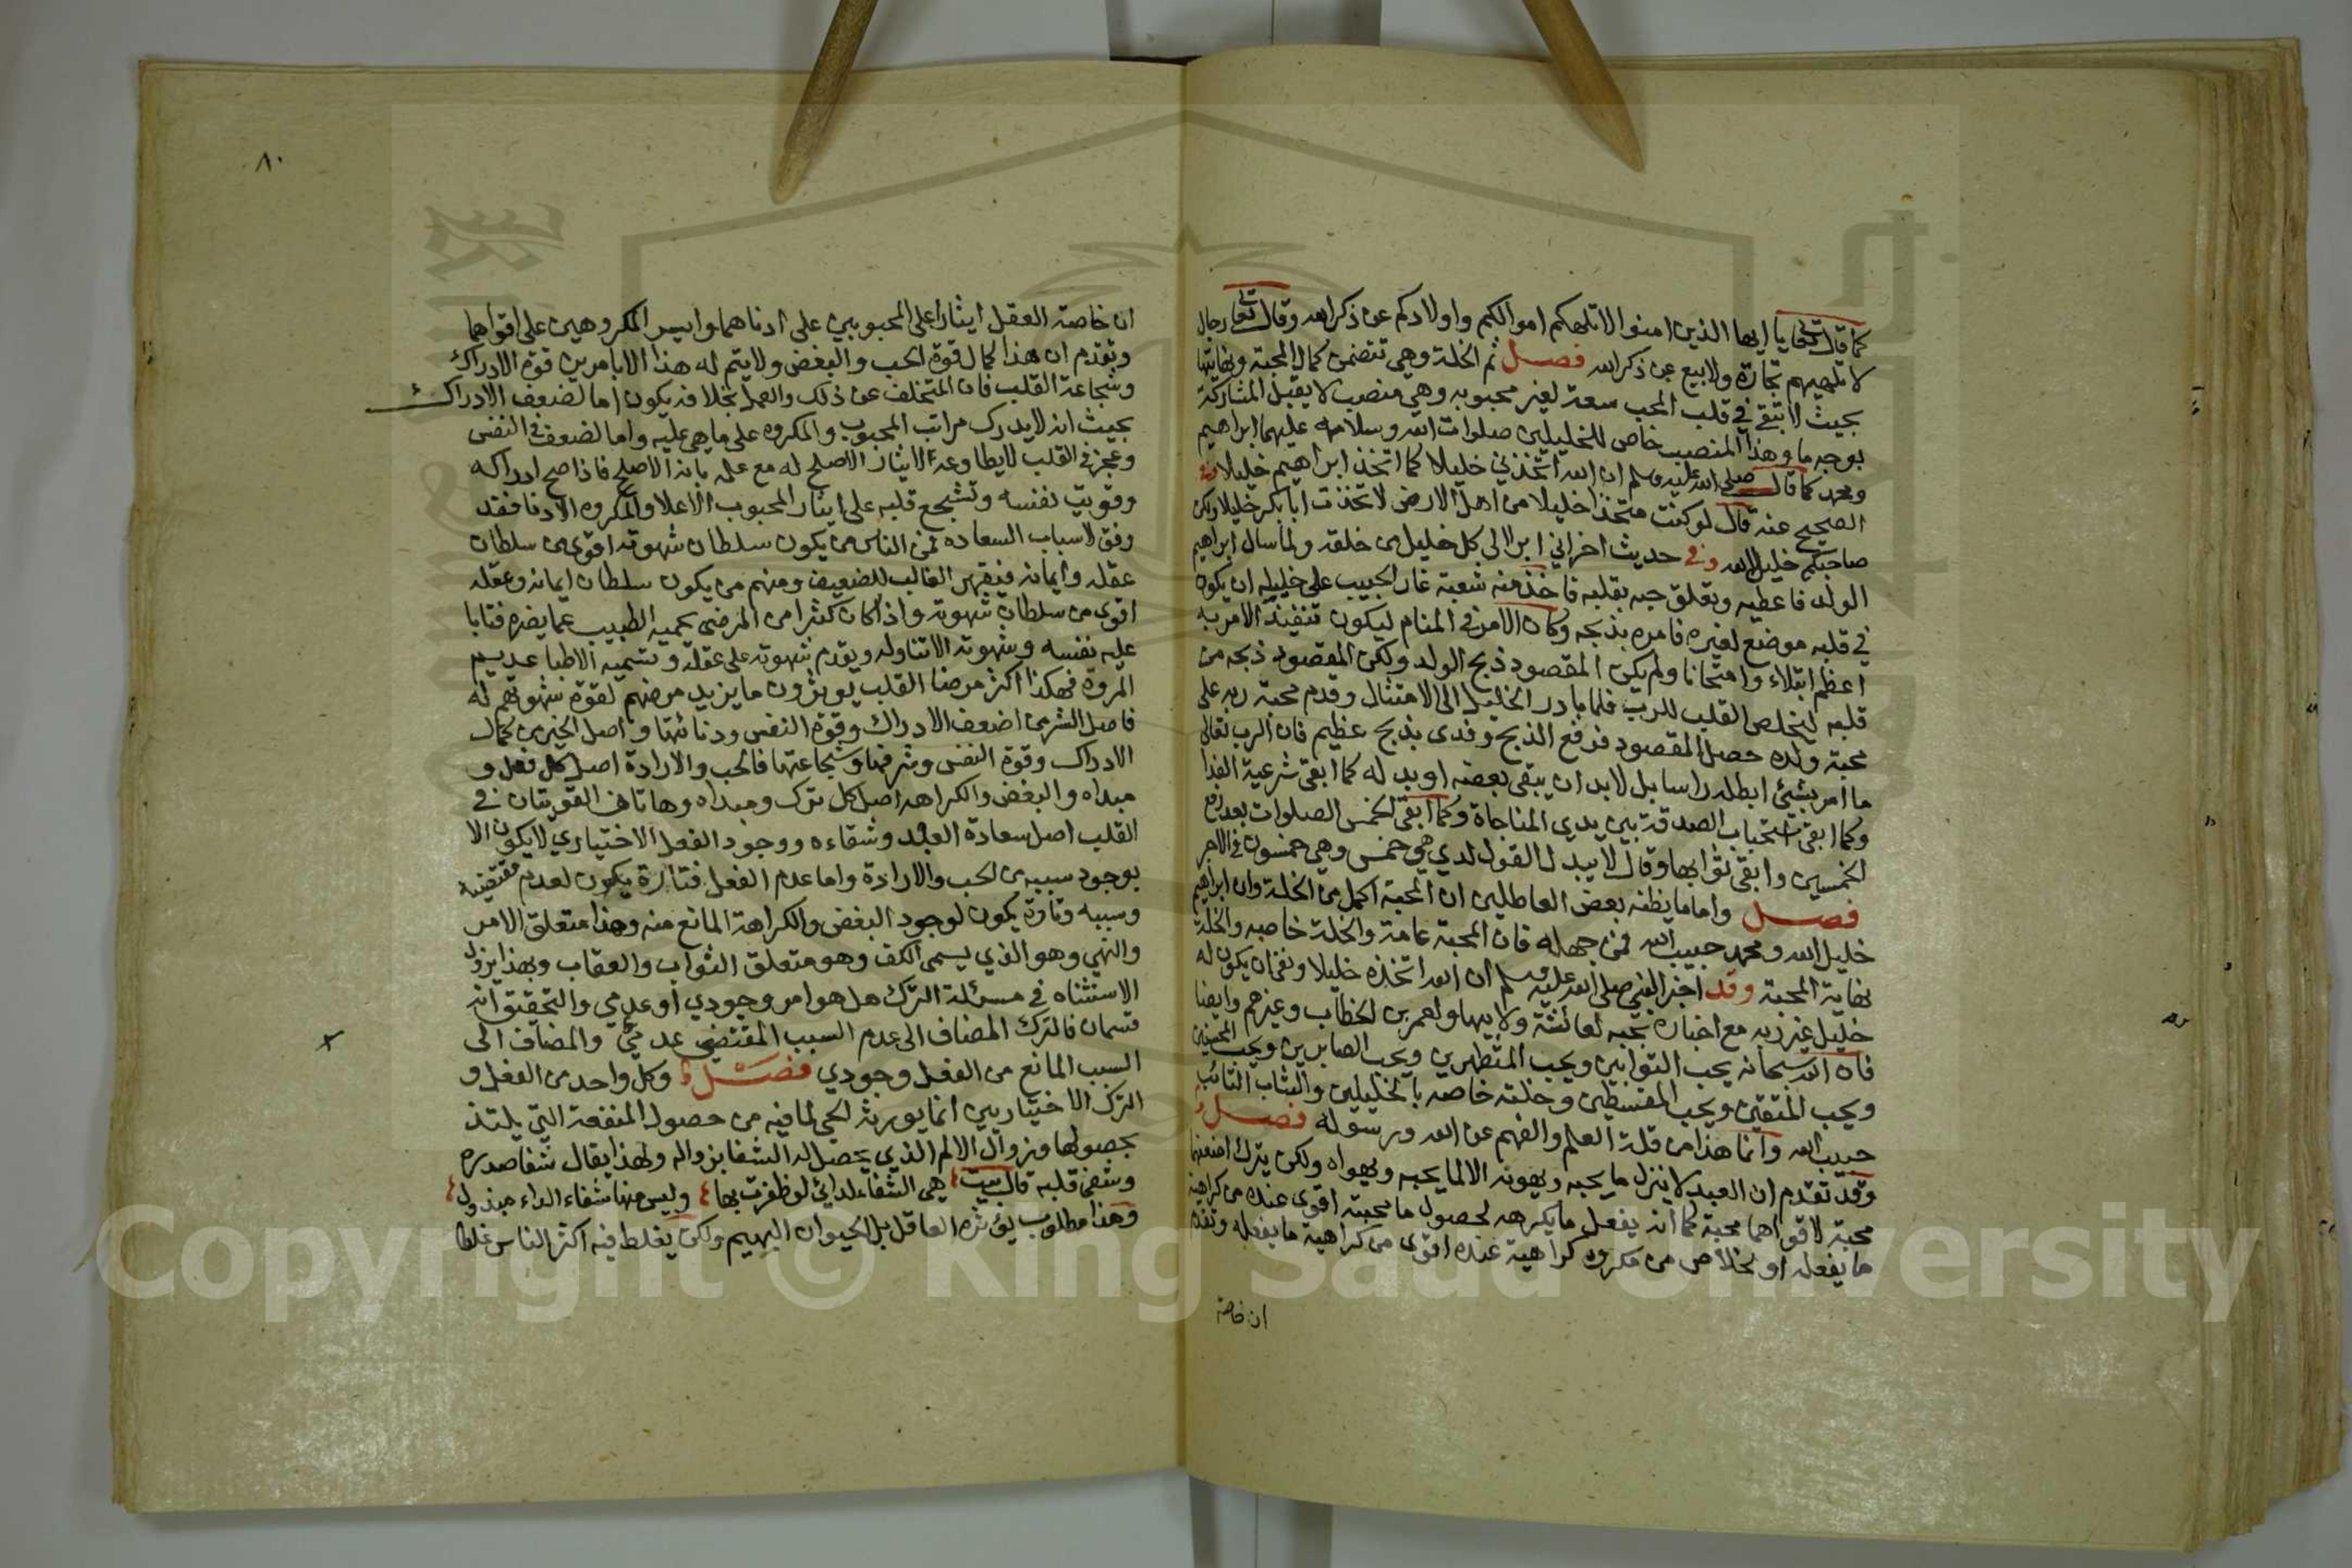 كما قال تعالى يا ايها الذين امنوا لا تلهكم اموالكم واولادكم عن ذكر الله وقال تعالى رجال
لا تلهيهم تجارة ولا بيع عن ذكر الله فصل ثم الخلة وهي تتضمن كمال المحبة ونهايتها
بحيث لا تبقي في قلب المحب سعة لغير محبوبه وهي منصب لا يقبل المشاركة
بوجه ما وهذا المنصب خاص للخليلين صلوات الله وسلامه عليهما ابراهيم
ومحمد كما قال صلى الله عليه وسلم ان الله اتخذني خليلا كما اتخذ ابراهيم خليلا وفي
الصحيح عنه قال لو كنت متخذا خليلا من اهل الارض لاتخذت ابا بكر خليلا ولكن
صاحبكم خليل الله وفي حديث اخر اني ابرا الى كل خليل من خلقه ولما سال ابراهيم
الولد فاعطيه وتعلق حبه بقلبه فاخذ منه شعبة غار الحبيب على خليله ان يكون
في قلبه موضع لغيره فامره بذبحه وكان الامر في المنام ليكون تنفيذ الامر به
اعظم ابتلاء وامتحانا ولم يكن المقصود ذبح الولد ولكن المقصود ذبحه من
قلبه ليخلص القلب للرب فلما بادر الخليل الى الامتثال وقدم محبة ربه على
محبة ولده حصل المقصود فرفع الذبح وفدى بذبح عظيم فان الرب تعالى
ما امر بشئ ابطله راسا بل لابد ان يبقى بعضه او بدله كما ابقى شرعية الفدا
وكما ابقى استحباب الصدقة بين يدي المناجاة وكما ابقى الخمس الصلوات بعد رفع
الخمسين وابقى ثوابها وقال لا يبدل القول لدي هي خمس وهي خمسون في الاجر
فصل واما ما يظنه بعض الغاطلين ان المحبة اكمل من الخلة وان ابراهيم
خليل الله ومحمد حبيب الله فمن جهله فان المحبة عامة والخلة خاصه والخلة
نهاية المحبة وقد اخبر النبي صلى الله عليه وسلم ان الله اتخذه خليلا ونفى ان يكون له
خليل غير ربه مع اخباره بحبه لعائشة ولابيها ولعمر بن الخطاب وغيرهم وايضا
فان الله سبحانه يحب التوابين ويحب المتطهرين ويحب الصابرين ويحب المحسنين
ويحب المتقين ويحب المقسطين وخلته خاصه بالخليلين والشاب التائب
حبيب الله وانما هذا من قلة العلم والفهم عن الله ورسوله فصل
وقد تقدم ان العبد لا يترك ما يحبه ويهوئه الا لما يحبه ويهواه ولكن يترك اضعفهما
محبة لاقواهما محبة كما انه يفعل ما يكرهه لحصول ما محبته اقوى عنده من كراهية
ما يفعله او لخلاص من مكروه كراهية عنده اقوى من كراهية ما يفعله وتقدم
ان خاصة
٨٠
ان خاصة العقل ايثار اعلى المحبوبين على ادناهما وايسر المكروهين على اقواهما
وتقدم ان هذا كمال قوة الحب والبغض ولا يتم له هذا الا بامرين قوة الادراك
وشجاعة القلب فان المتخلف عن ذلك والعمل بخلافه يكون اما لضعف الادراك
بحيث انه لا يدرك مراتب المحبوب والمكروه على ما هي عليه واما لضعف في النفس
وعجز في القلب لا يطاوعه الايثار الاصلح له مع علمه بانه الاصلح فاذا صح ادراكه
وقويت نفسه وتشجع قلبه على ايثار المحبوب الاعلا والمكروه الادنا فقد
وفق لاسباب السعاده فمن الناس من يكون سلطان شهوته اقوى من سلطان
عقله وايمانه فيقهر الغالب للضعيف ومنهم من يكون سلطان ايمانه وعقله
اقوى من سلطان شهوته واذا كان كثيرا من المرضى يحميه الطبيب عما يضره فتابا
عليه نفسه وشهوته الا تناوله ويقدم شهوته على عقله وتسميه الاطبا عديم
المروة فهكذا اكثر مرضا القلب يوثرون ما يزيد مرضهم لقوة شهوتهم له
فاصل الشر من اضعف الادراك وقوة النفس ودنائتها واصل الخير من كمال
الادراك وقوة النفس وشرفها وشجاعتها فالحب والارادة اصل كل فعل و
مبداه والبغض والكراهه اصل كل ترك ومبداه وهاتان القوتان في
القلب اصل سعادة العبد وشقاءه ووجود الفعل الاختياري لا يكون الا
بوجود سببه من الحب والارادة واما عدم الفعل فتارة يكون لعدم مقتضيه
وسببه وتارة يكون لوجود البغض والكراهة المانع منه وهذا متعلق الامر
والنهي وهو الذي يسمى الكف وهو متعلق الثواب والعقاب وبهذا يزول
الاستثناه في مسئلة الترك هل هو امر وجودي او عدمي والتحقيق انه
قسمان فالترك المضاف الى عدم السبب المقتضي عدمي والمضاف الى
السبب المانع من الفعل وجودي فصل وكل واحد من الفعل و
الترك الاختياريين انما يورثه الحي لما فيه من حصول المنفعة التي يلتذ
بحصولها وزوال الالم الذي يحصل له الشفا بزواله ولهذا يقال شفا صدره
وشفى قلبه قال بيت هي الشفاء لدائي لو ظفرت بها وليس منها شفاء الداء مبذول
وهذا مطلوب يؤثره العاقل بل الحيوان البهيم ولكن يغلط فيه اكثر الناس غلطا
Copyright © King Saud University